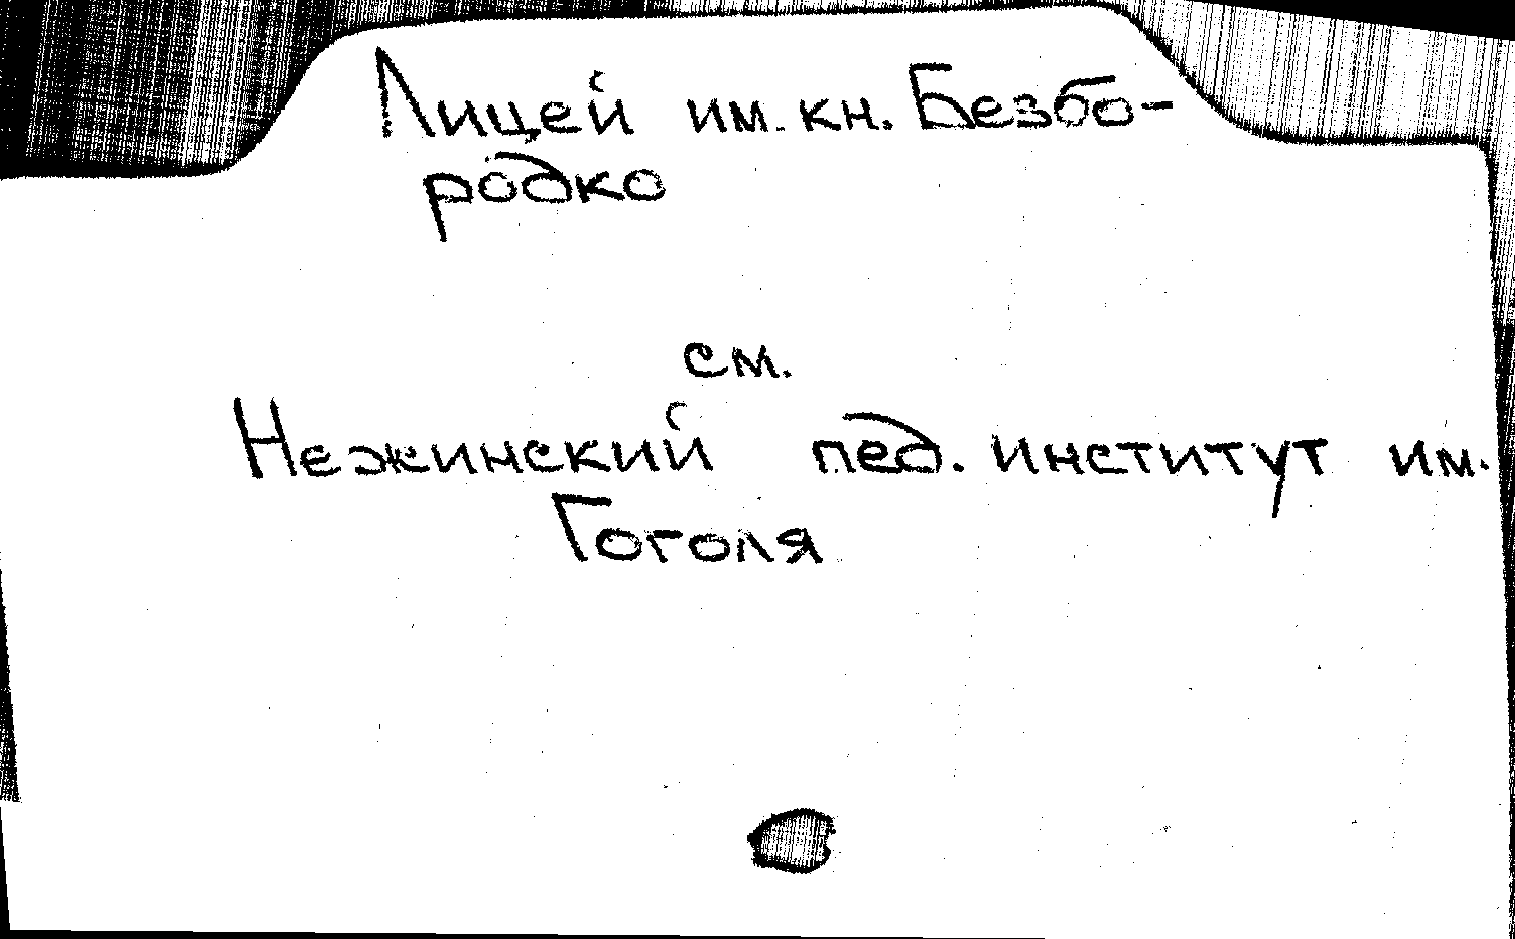 Лицей им. кн. Безбо-
родко
см.
Нежинский пед. институт им.
Гоголя